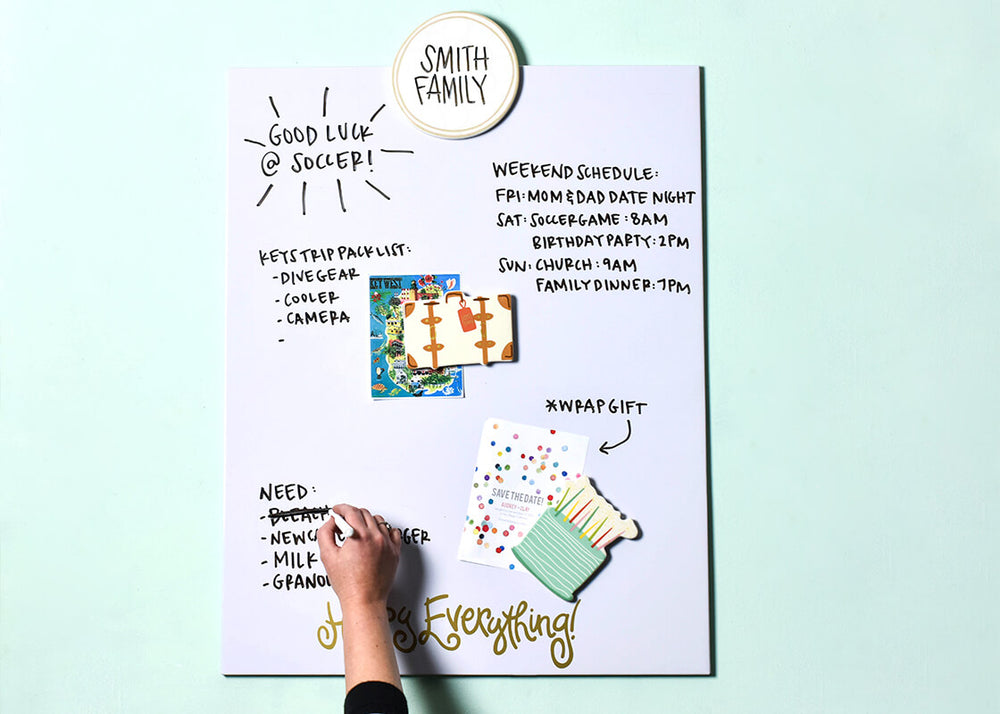 SMITH
FAMILY
GOOD LUCK
@ SOCCER!
WEEKEND SCHEDULE:
FRI: MOM & DAD DATE NIGHT
SAT: SOCCER GAME: 8AM
BIRTHDAY PARTY: 2PM
SUN: CHURCH: 9AM
FAMILY DINNER: 7PM
KEYS TRIP PACK LIST:
- DIVE GEAR
- COOLER
- CAMERA
-
KEY WEST
*WRAP GIFT
SAVE THE DATE!
NEED:
- BLEACH
- NEW
- MILK
-
Everything!